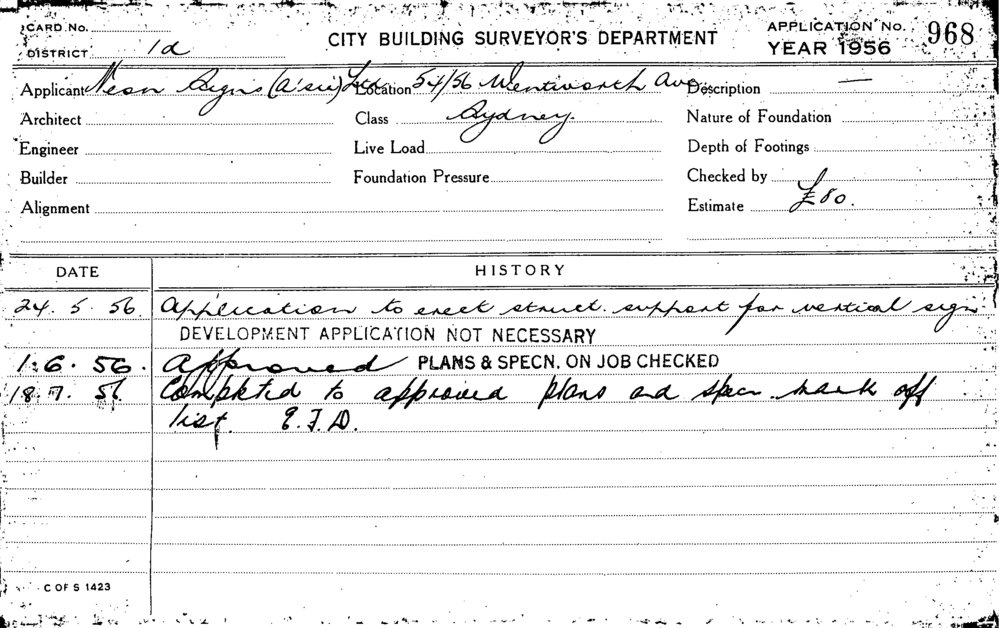 CARD No.
DISTRICT 1d
CITY BUILDING SURVEYOR'S DEPARTMENT
APPLICATION No. 968
YEAR 1956
Applicant Neon Signs (A'sia) Ltd Location 54/56 Wentworth Ave, Description —
Architect Class Sydney. Nature of Foundation
Engineer Live Load Depth of Footings
Builder Foundation Pressure Checked by
Alignment Estimate £80.
DATE HISTORY
24. 5. 56. Application to erect struct. support for vertical sign
DEVELOPMENT APPLICATION NOT NECESSARY
1. 6. 56. Approved PLANS & SPECN. ON JOB CHECKED
18. 7. 56 Completed to approved plans and specn. mark off
list. E.J.D.
C OF S 1423